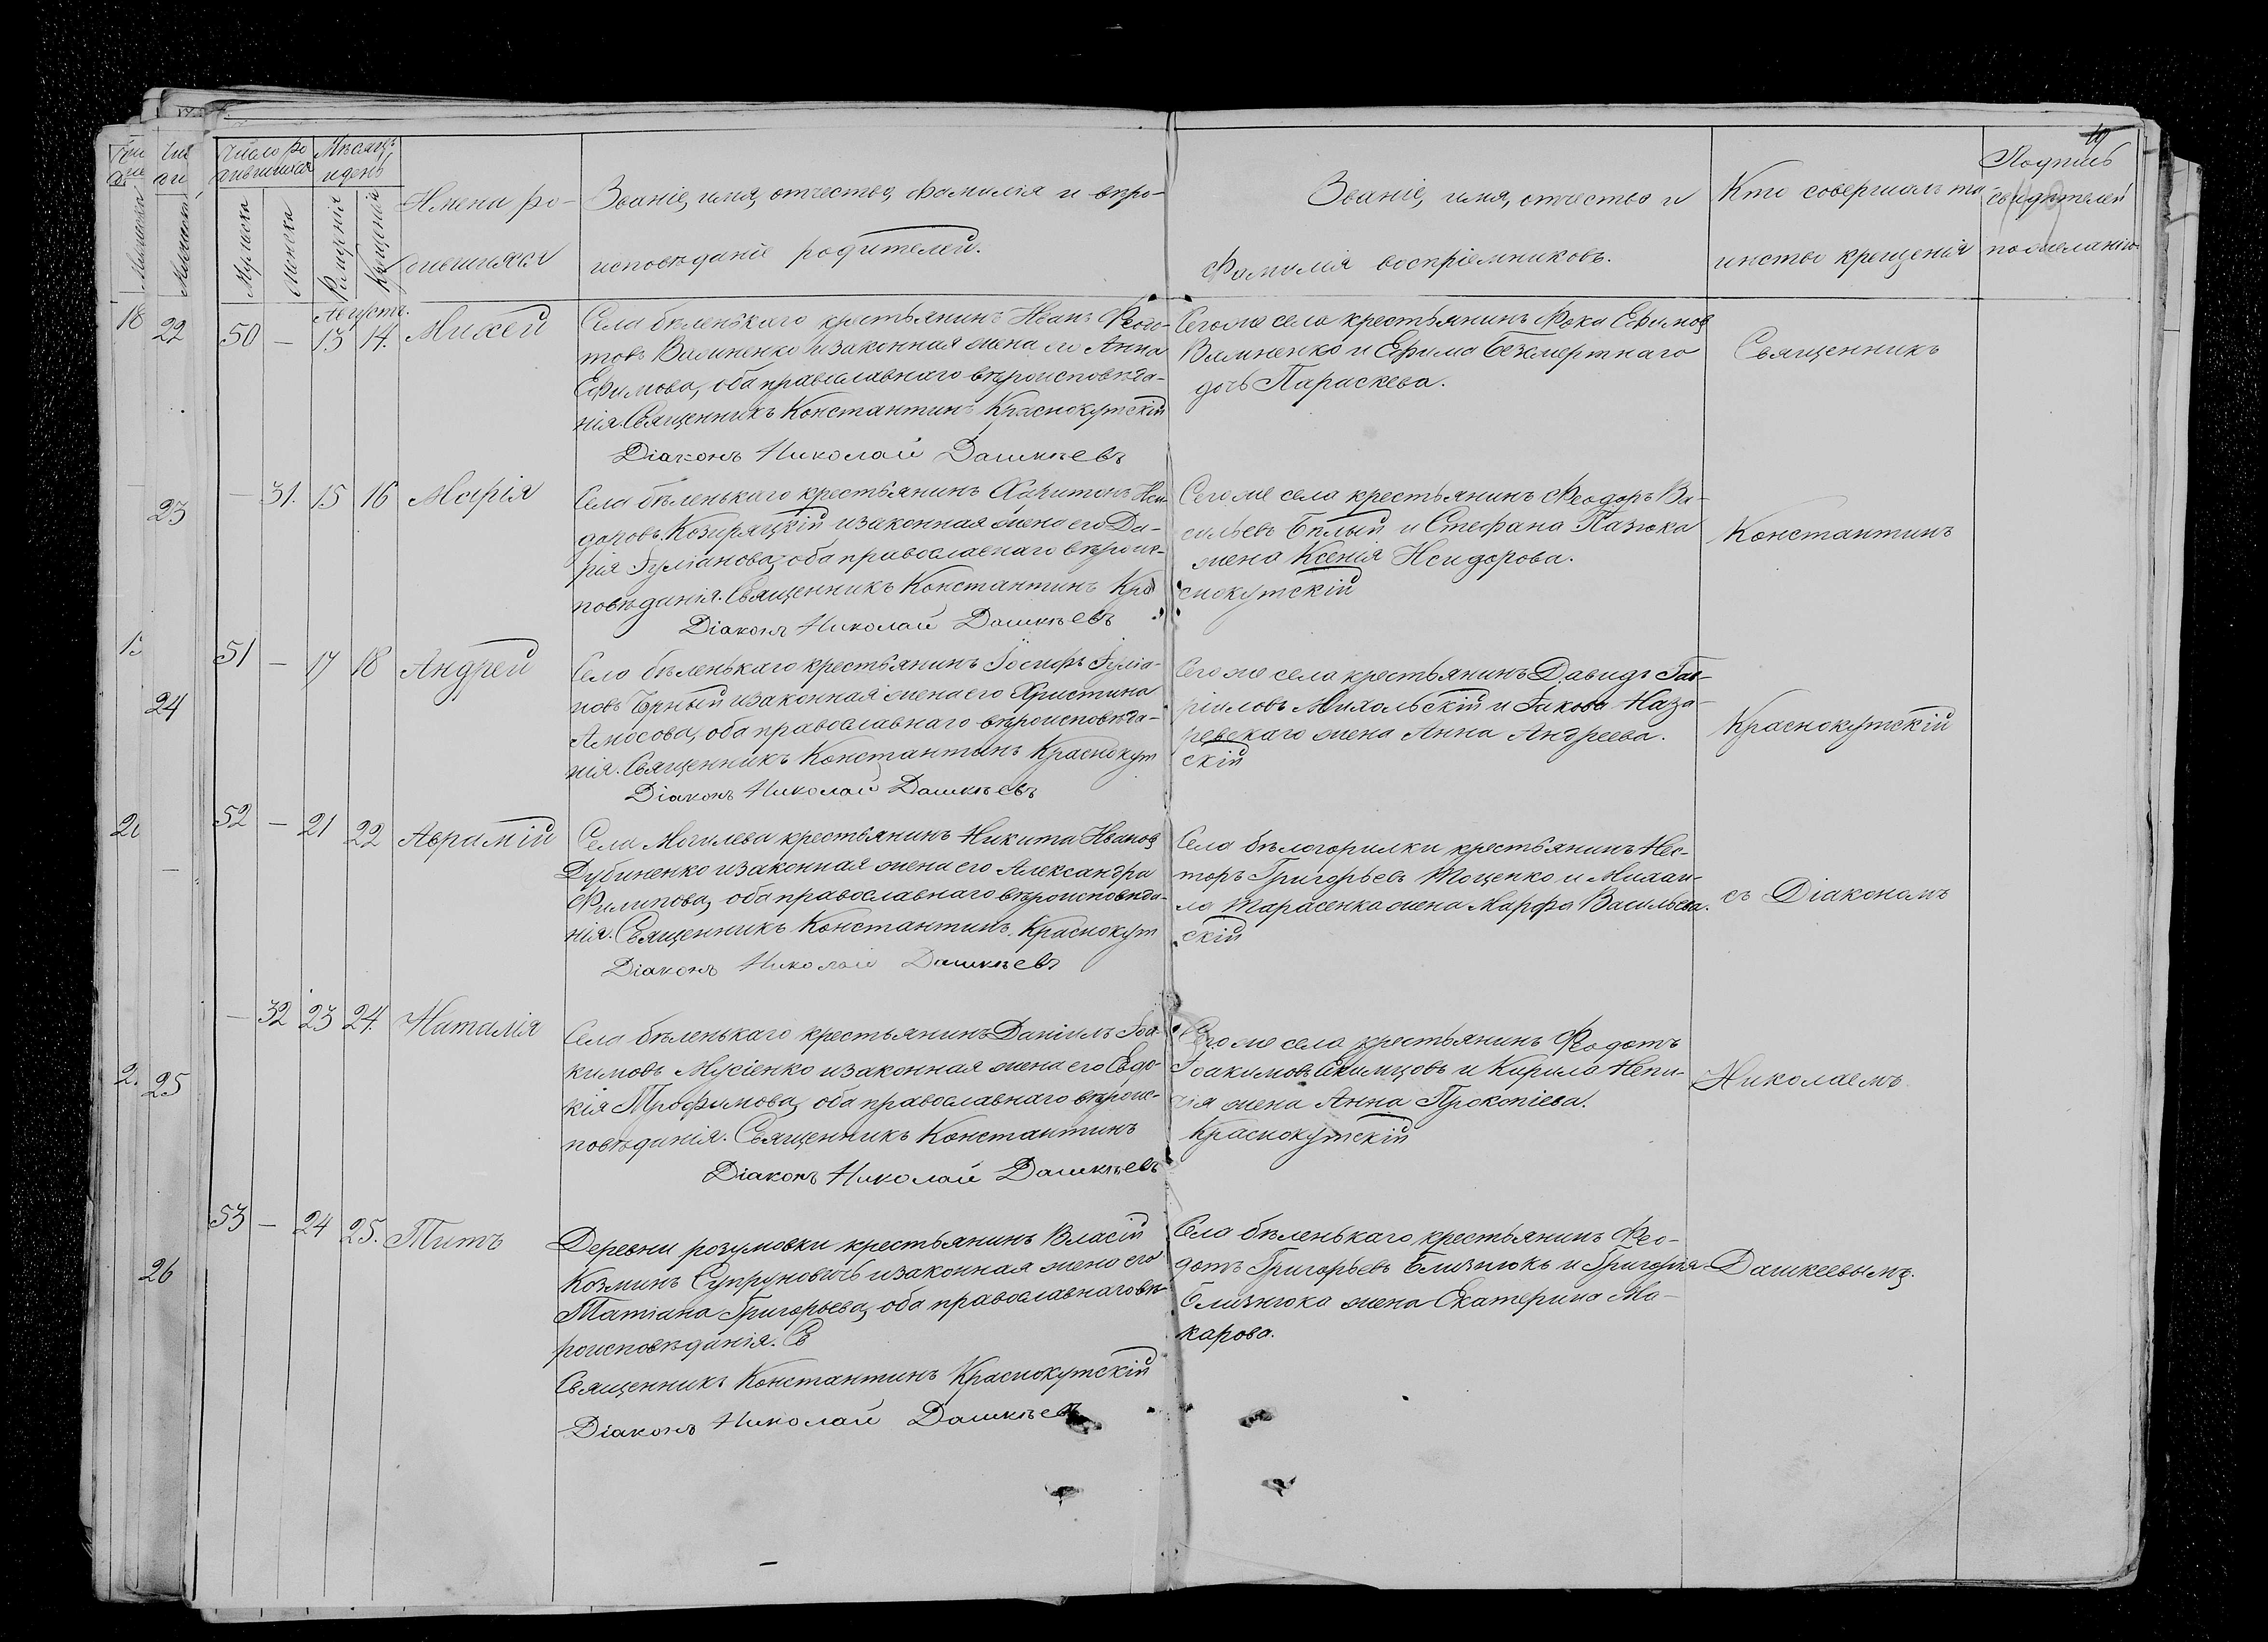 Число ро
дившихся
Мѣсяцъ
и день
Мужеска
Женска
Рожденія
Крещенія
Имена ро-
дившихся
Званіе, имя, отчество, фамилія и вѣро-
исповѣданіе родителей.
Званіе, имя, отчество и
фамилія воспріемниковъ.
Кто совершалъ та-
инство крещенія
Подпись
свидѣтелей
по желанію.
Августъ.
50 — 13 14. Михей
Села бѣленькаго крестьянинъ Иванъ Ѳедо-
товъ Вилиненко и законная жена его Анна
Ефимова, оба православнаго вѣроисповѣда-
нія. Священникъ Константинъ Краснокутскій
Діаконъ Николай Дашкѣевъ
Сего же села крестьянинъ Фока Ефимовъ
Вилиненко и Ефима Безсмертнаго
дочь Параскева.
Священникъ
— 31. 15 16 Марія
Села бѣленькаго крестьянинъ Харитонъ Иси-
доровъ Козиряцкій и законная жена его Да-
рія Іуліанова, оба православнаго вѣроис-
повѣданія. Священникъ Константинъ Кра
снокутскій
Діаконъ Николай Дашкѣевъ
Сего же села крестьянинъ Ѳеодоръ Ва-
сильевъ Бѣлый и Стефана Пазюка
жена Ксенія Исидорова.
Константинъ
51 — 17 18 Андрей
Села бѣленькаго крестьянинъ Іосифъ Іуліа-
новъ Чорный и законная жена его Христина
Амосова, оба православнаго вѣроисповѣда-
нія. Священникъ Константинъ Краснокут
скій
Діаконъ Николай Дашкѣевъ
Сего же села крестьянинъ Давидъ Гав-
ріиловъ Михольскій и Іакова Наза-
ревскаго жена Анна Андреева.
Краснокутскій
52 — 21 22 Аврамій
Села Могилева крестьянинъ Никита Ивановъ
Дубиненко и законная жена его Александра
Филипова, оба православнаго вѣроисповѣда-
нія. Священникъ Константинъ Краснокут
скій
Діаконъ Николай Дашкѣевъ
Села бѣлогорилки крестьянинъ Нес-
торъ Григорьевъ Тоценко и Михаи-
ла Тарасенка жена Марфа Васильева.
съ Діакономъ
— 32 23 24. Наталія
Села бѣленькаго крестьянинъ Даніилъ Іоа-
кимовъ Мусіенко и законная жена его Евдо-
кія Трофимова, оба православнаго вѣроис-
повѣданія. Священникъ Константинъ
Краснокутскій
Діаконъ Николай Дашкѣевъ
Сего же села крестьянинъ Ѳеодотъ
Іоакимовъ и Кирила Непи-
жена Анна Прокопіева.
Николаемъ
53 — 24 25. Титъ
Деревни розумовки крестьянинъ Власій
Козминъ Супруновичь и законная жена его
Татіана Григорьева, оба православнаго вѣ-
роисповѣданія. Св
Священникъ Константинъ Краснокутскій
Діаконъ Николай Дашкѣевъ
Села бѣленькаго крестьянинъ Ѳео-
дотъ Григорьевъ Близнюкъ и Григорія
Близнюка жена Екатерина Ма-
карова.
Дашкеевымъ.
18
22
23
24
25
26